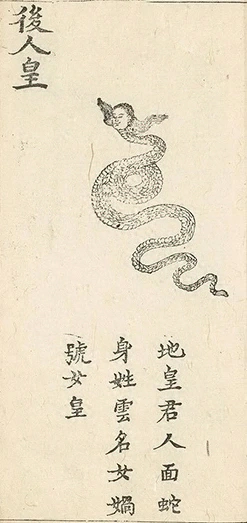 後人皇
地皇君人面蛇
身姓雲名女媧
號女皇